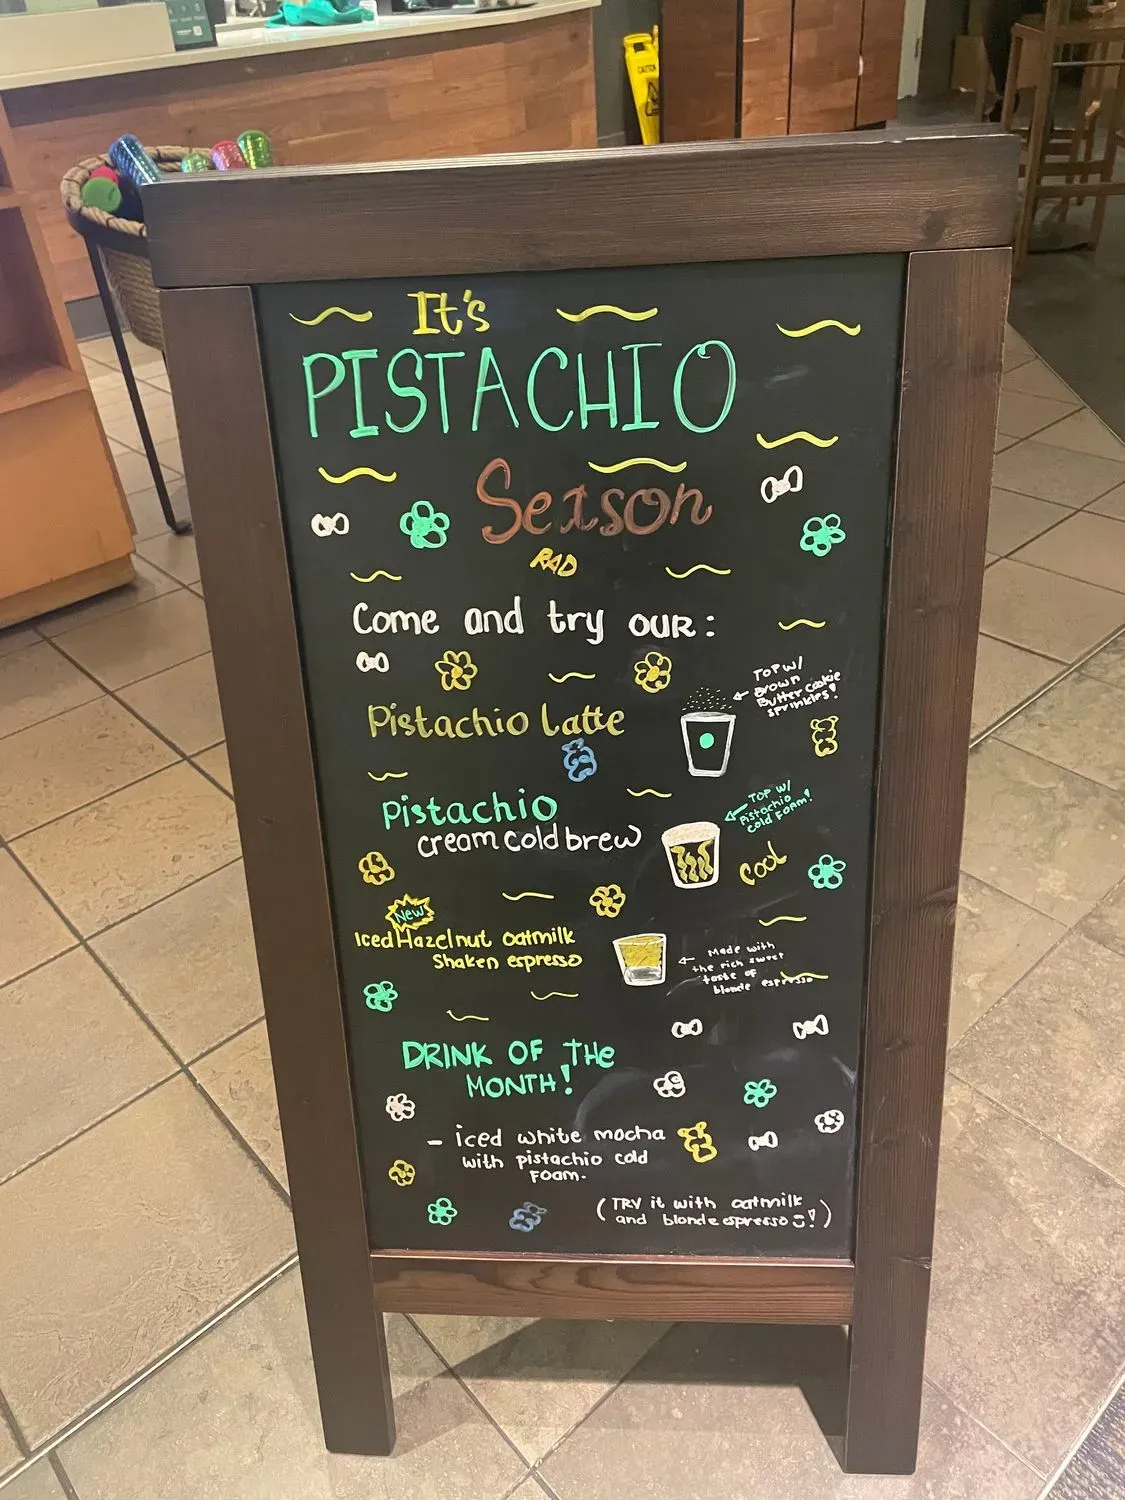 It's
PISTACHIO
Season
RAD
Come and try our:
TOP W/
Brown
Butter cookie
sprinkles!
Pistachio Latte
TOP W/
Pistachio
cold Foam!
Pistachio
cream cold brew
cool
New
Iced Hazelnut oatmilk
Shaken espresso
Made with
the rich sweet
taste of
blonde espresso
DRINK OF THE
MONTH!
- iced white mocha
with pistachio cold
Foam.
(TRY it with oatmilk
and blonde espresso!)
CAUTION